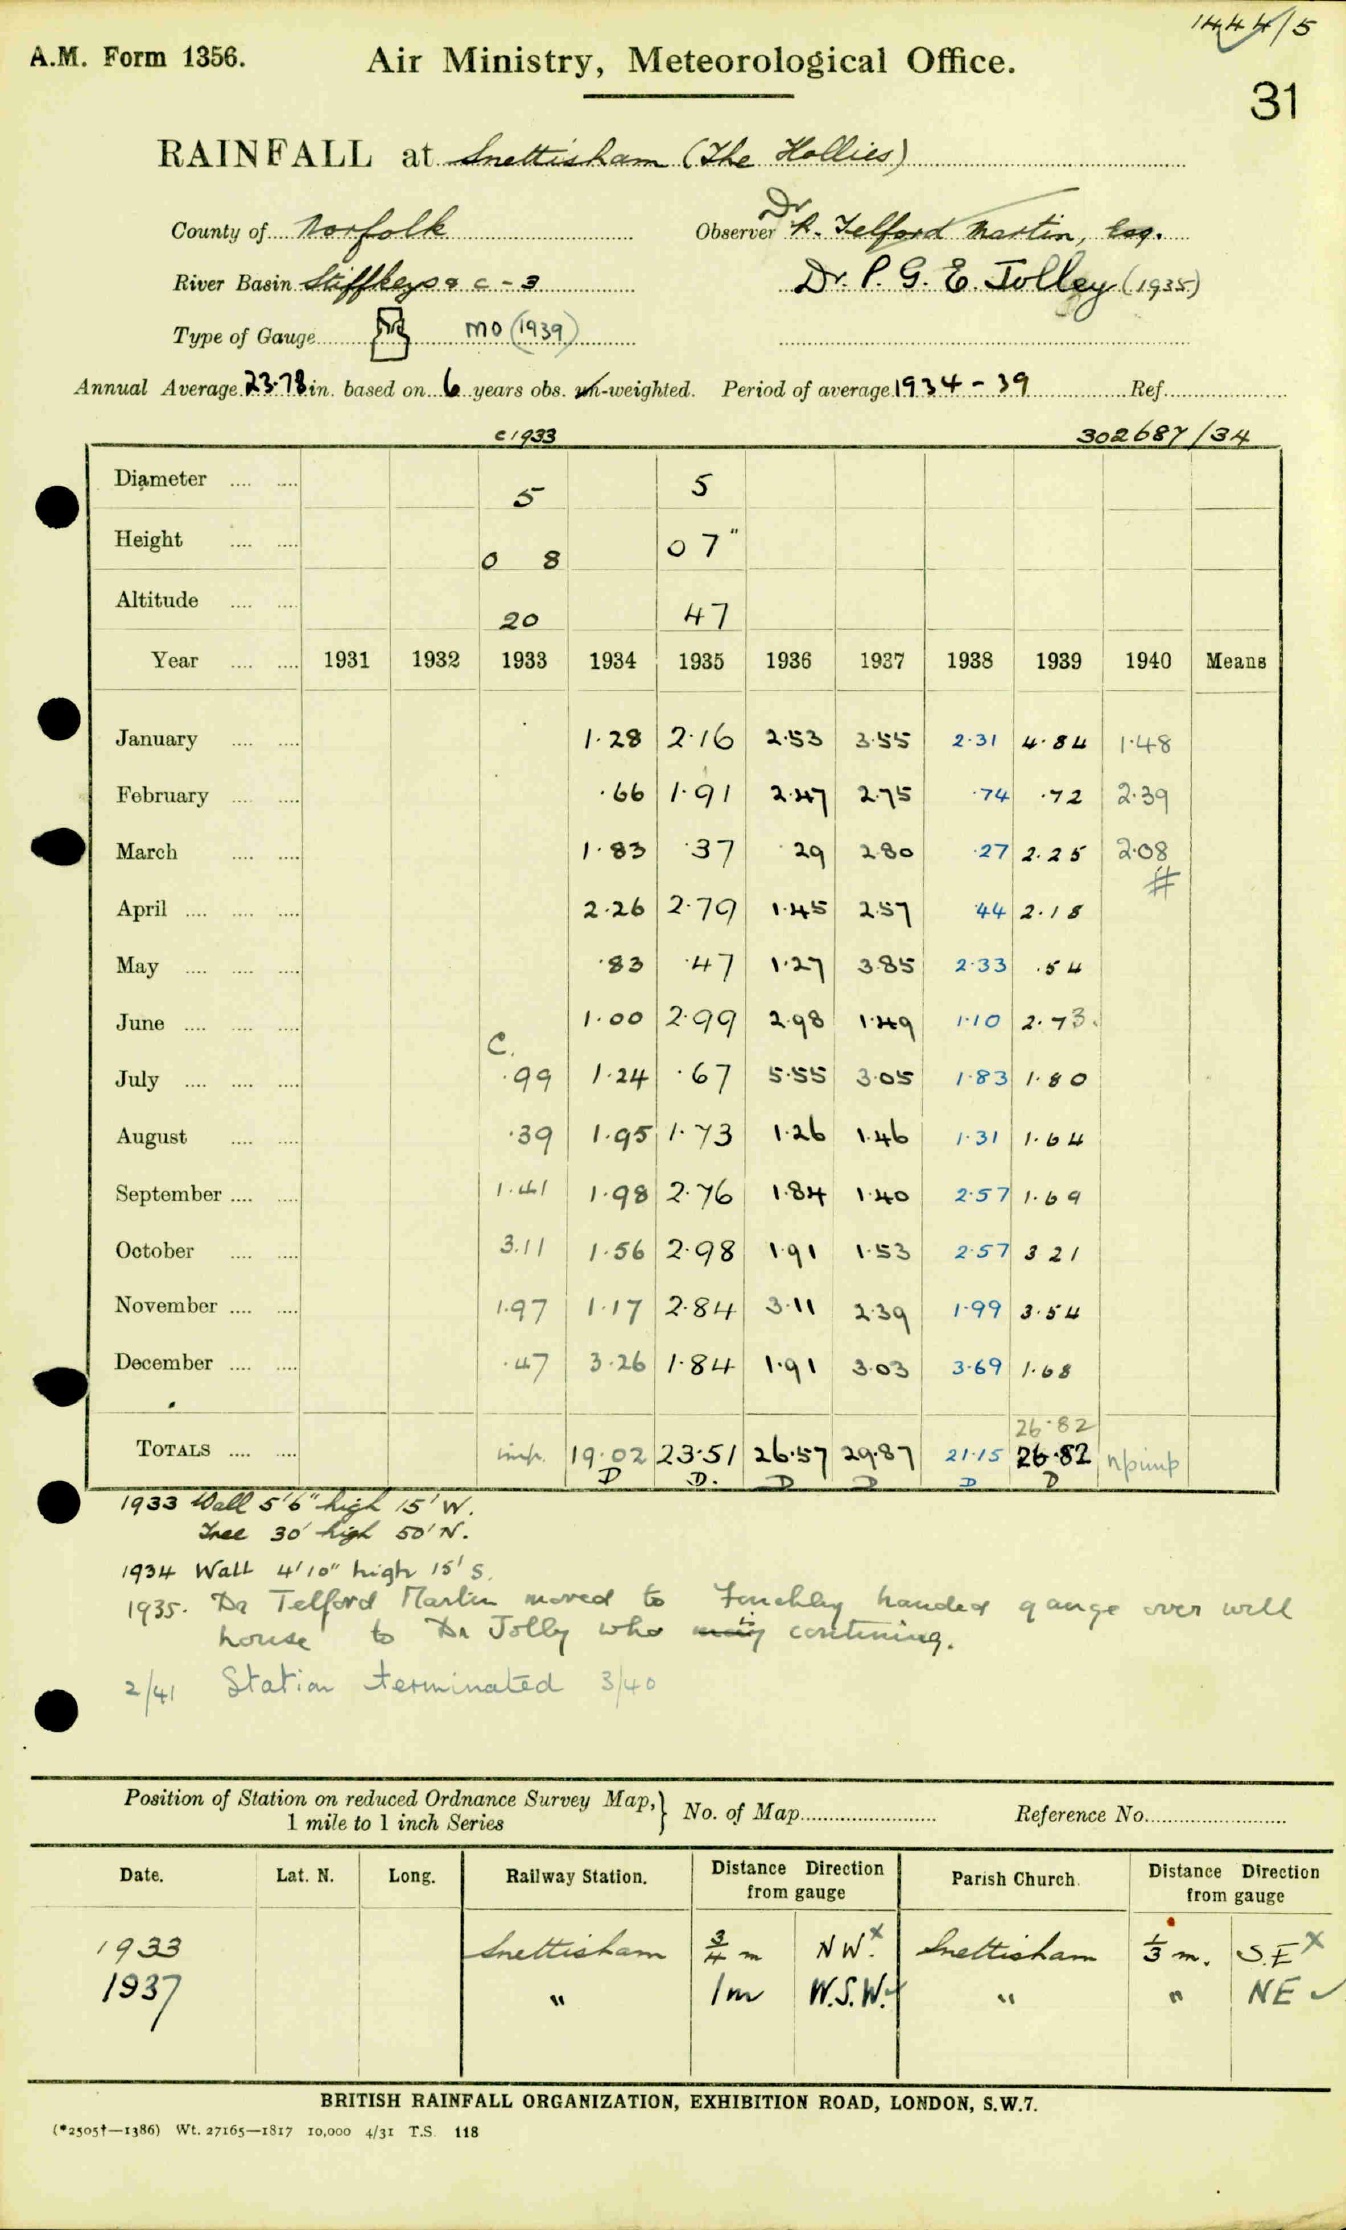 1444/5
A.M. Form 1356. Air Ministry, Meteorological Office.
31
RAINFALL at Snettisham (The Hollies)
County of Norfolk Observer Dr R. Telford Martin, Esq.
River Basin Stiffkey &c - 3 Dr. P. G. E. Jolley (1935)
Type of Gauge MO (1939)
Annual Average 23.78 in. based on 6 years obs. un-weighted. Period of average 1934 - 39 Ref.
c1933 302687/34
Diameter 5 5
Height 0 8 0 7"
Altitude 20 47
Year 1931 1932 1933 1934 1935 1936 1937 1938 1939 1940 Means
January 1.28 2.16 2.53 3.55 2.31 4.84 1.48
February .66 1.91 2.47 2.75 .74 .72 2.39
March 1.83 .37 .29 2.80 .27 2.25 2.08
#
April 2.26 2.79 1.45 2.57 .44 2.18
May .83 .47 1.27 3.85 2.33 .54
June 1.00 2.99 2.98 1.49 1.10 2.73.
C.
July .99 1.24 .67 5.55 3.05 1.83 1.80
August .39 1.95 1.73 1.26 1.46 1.31 1.64
September 1.41 1.98 2.76 1.84 1.40 2.57 1.69
October 3.11 1.56 2.98 1.91 1.53 2.57 3 21
November 1.97 1.17 2.84 3.11 2.39 1.99 3.54
December .47 3.26 1.84 1.91 3.03 3.69 1.68
26.82
TOTALS imp. 19.02 23.51 26.57 29.87 21.15 26.82 npimp
D D. D D D D
1933 Wall 5'6" high 15' W.
Tree 30' high 50' N.
1934 Wall 4'10" high 15' S.
1935. Dr Telford Martin moved to Finchley handed gauge over with
house to Dr Jolly who is continuing.
2/41 Station terminated 3/40
Position of Station on reduced Ordnance Survey Map, 1 mile to 1 inch Series } No. of Map Reference No.
Date. Lat. N. Long. Railway Station. Distance Direction from gauge Parish Church. Distance Direction from gauge
1933 Snettisham 3/4 m NW. x Snettisham 1/3 m. S.E x
1937 " 1m W.S.W. ✓ " " NE ✓
BRITISH RAINFALL ORGANIZATION, EXHIBITION ROAD, LONDON, S.W.7.
(*2505†—1386) Wt. 27165—1817 10,000 4/31 T.S. 118